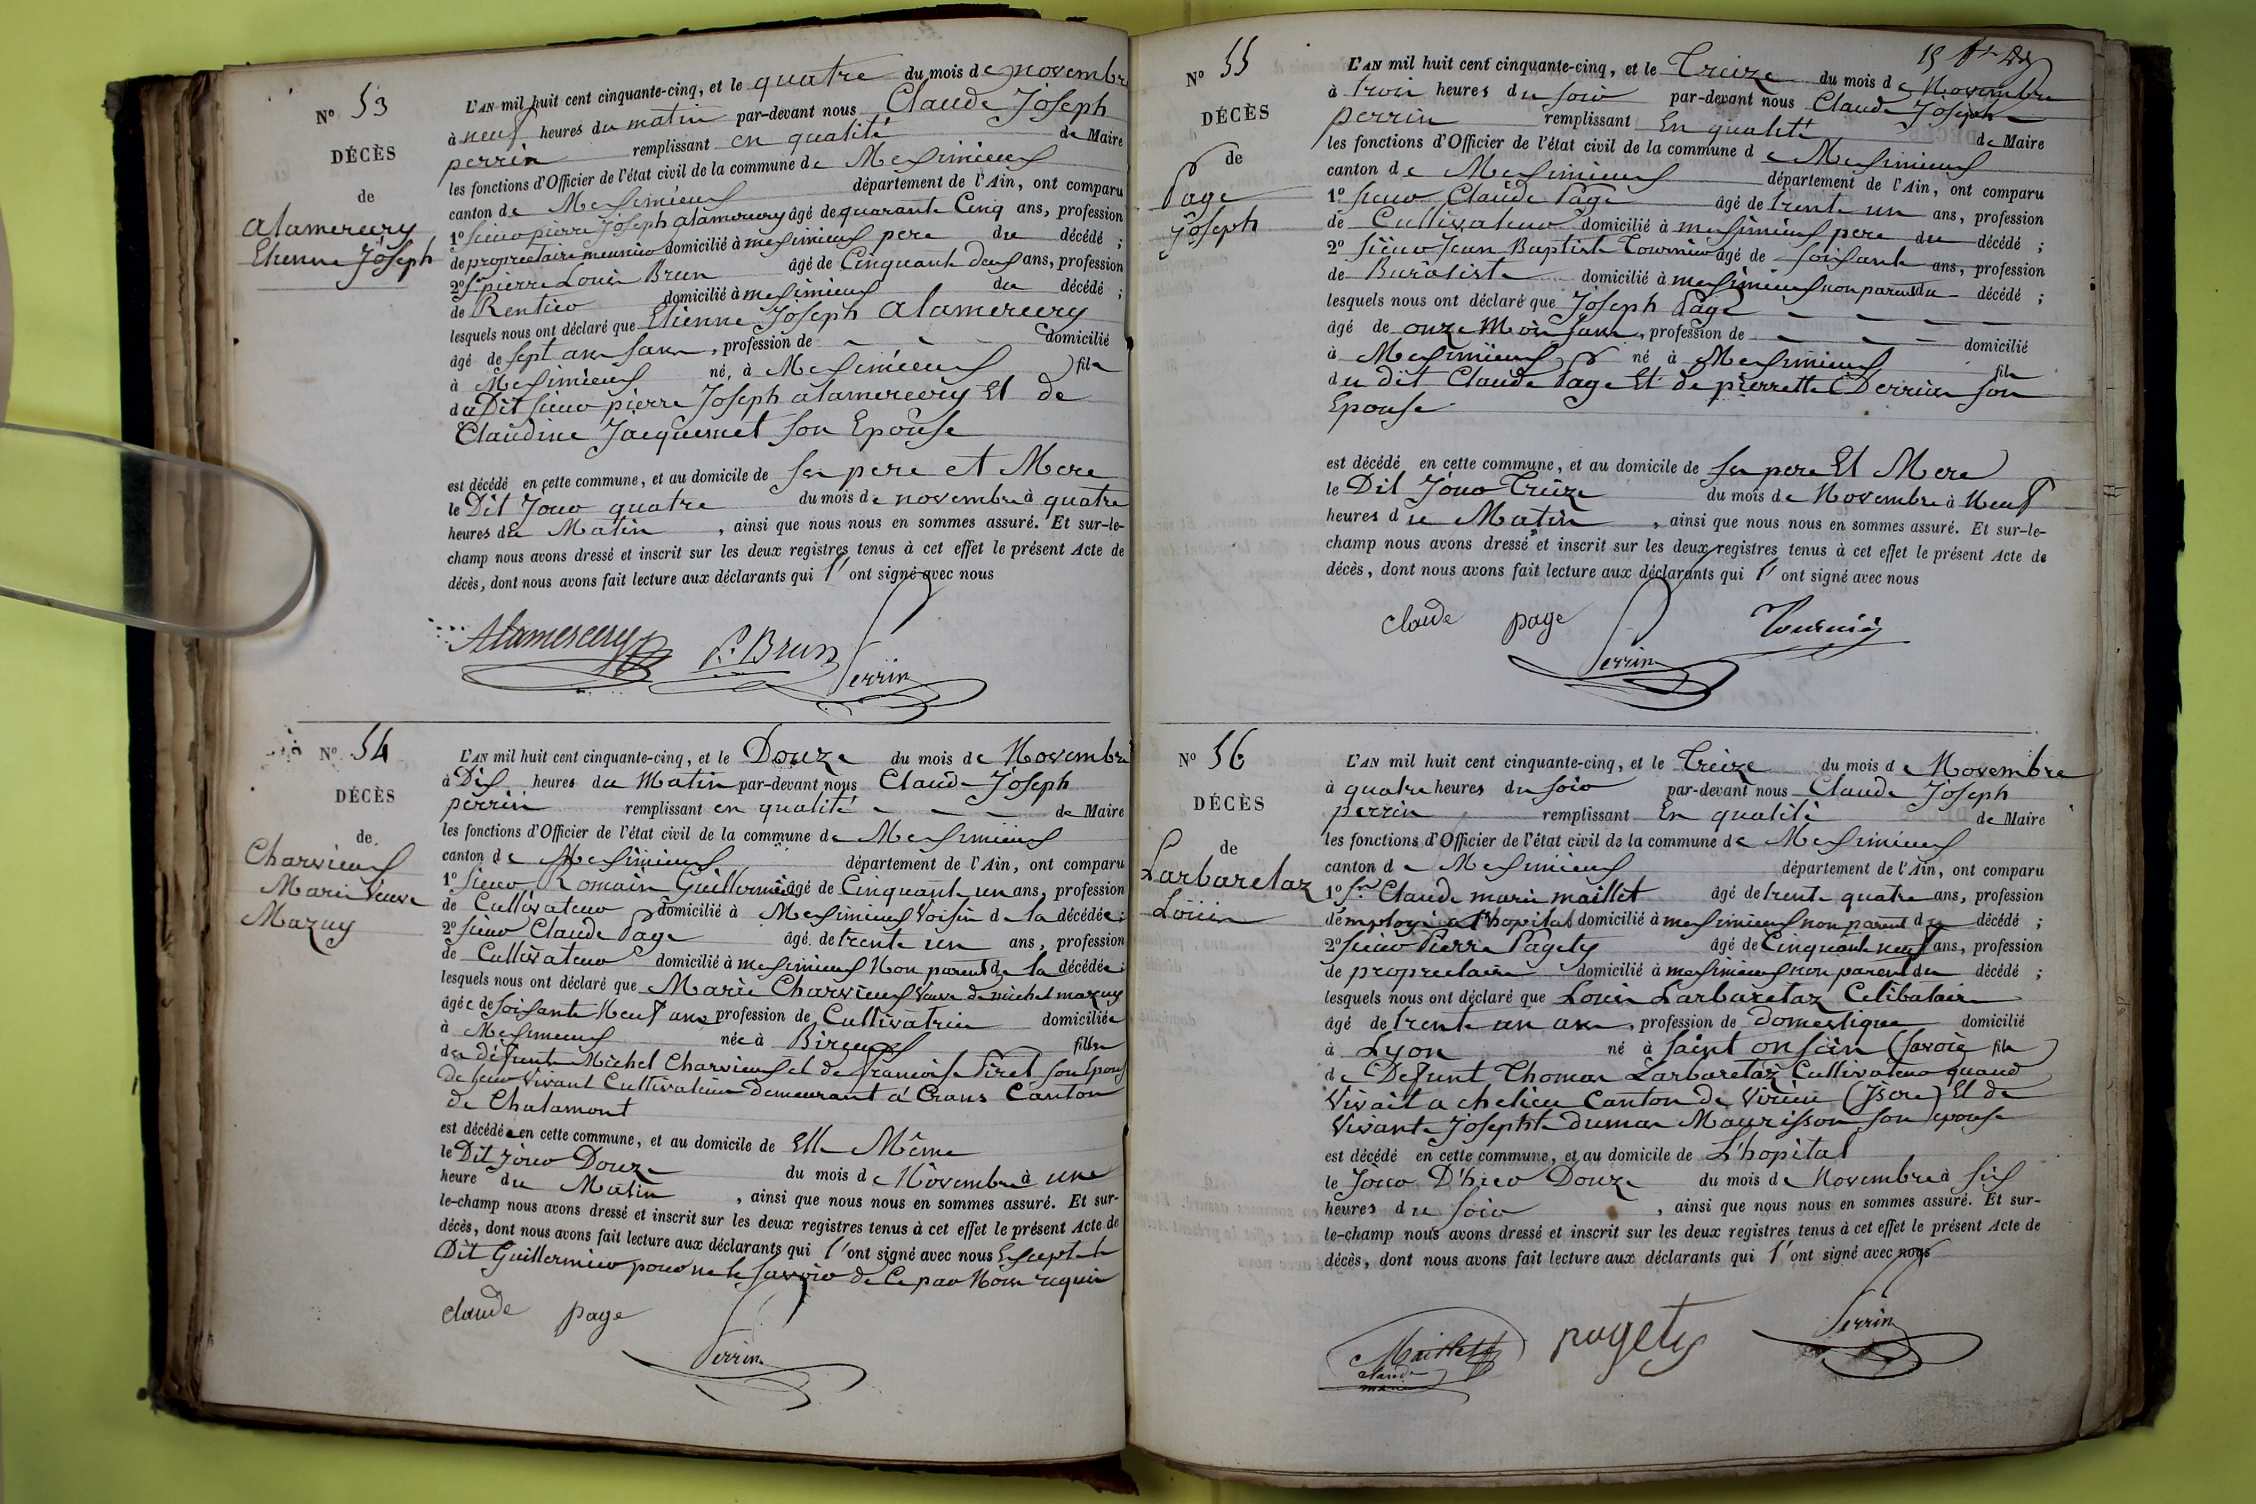 N° 53
DÉCÈS
de
alamercery
Etienne Joseph
L'AN mil huit cent cinquante-cinq, et le quatre du mois de novembre
à neuf heures du matin par-devant nous Claude Joseph
perrin remplissant en qualité de Maire
les fonctions d'Officier de l'état civil de la commune de Meximieux
canton de Meximieux département de l'Ain, ont comparu
1° sieur pierre Joseph alamercery âgé de quarante Cinq ans, profession
de proprietaire meunier domicilié à meximieux pere du décédé ;
2° Sr pierre Louis Brun âgé de Cinquante deux ans, profession
de Rentier domicilié à meximieux du décédé ;
lesquels nous ont déclaré que Etienne Joseph alamercery
âgé de sept ans sans, profession de domicilié
à Meximieux né, à Meximieux fils
du Dit sieur pierre Joseph alamercery Et de
Claudine Jacquemet son Epouse
est décédé en cette commune, et au domicile de ses pere et Mere
le Dit Jour quatre du mois de novembre à quatre
heures du Matin, ainsi que nous nous en sommes assuré. Et sur-le-
champ nous avons dressé et inscrit sur les deux registres tenus à cet effet le présent Acte de
décès, dont nous avons fait lecture aux déclarants qui l'ont signé avec nous
Alamercery P. Brun Perrin
N° 54
DÉCÈS
de
Charvieux
Marie Veuve
Mazuy
L'AN mil huit cent cinquante-cinq, et le Douze du mois de Novembre
à Dix heures du Matin par-devant nous Claude Joseph
perrin remplissant en qualité de Maire
les fonctions d'Officier de l'état civil de la commune de Meximieux
canton de Meximieux département de l'Ain, ont comparu
1° sieur Romain Guillermier âgé de Cinquante un ans, profession
de Cultivateur domicilié à Meximieux Voisin de la décédée ;
2° sieur Claude Page âgé de trente un ans, profession
de Cultivateur domicilié à meximieux Non parent de la décédée ;
lesquels nous ont déclaré que Marie Charvieux Veuve de michel mazuy
âgée de soixante Neuf ans profession de Cultivatrice domiciliée
à Meximieux née à Birieux fille
des défunts Michel Charvieux et de Francoise Piret son Epouse
de leur Vivant Cultivateurs demeurant à Crans Canton
de Chalamont
est décédée en cette commune, et au domicile de Elle Même
le Dit jour Douze du mois de Novembre à une
heure du Matin, ainsi que nous nous en sommes assuré. Et sur-
le-champ nous avons dressé et inscrit sur les deux registres tenus à cet effet le présent Acte de
décès, dont nous avons fait lecture aux déclarants qui l'ont signé avec nous Excepté le
Dit Guillermier pour ne le savoir de Ce par Nous requis
claude page
Perrin
15
N° 55
DÉCÈS
de
Page
Joseph
L'AN mil huit cent cinquante-cinq, et le Treize du mois de Novembre
à trois heures du soir par-devant nous Claude Joseph
perrin remplissant En qualité de Maire
les fonctions d'Officier de l'état civil de la commune de Meximieux
canton de Meximieux département de l'Ain, ont comparu
1° sieur Claude Page âgé de trente un ans, profession
de Cultivateur domicilié à meximieux pere du décédé ;
2° sieur Jean Baptiste Tournier âgé de soixante ans, profession
de Buraliste domicilié à meximieux non parent du décédé ;
lesquels nous ont déclaré que Joseph Page
âgé de onze Mois sans, profession de domicilié
à Meximieux né à Meximieux fils
du dit Claude Page Et de pierrette Derrias son
Epouse
est décédé en cette commune, et au domicile de ses pere Et Mere
le Dit Jour Treize du mois de Novembre à Neuf
heures du Matin, ainsi que nous nous en sommes assuré. Et sur-le-
champ nous avons dressé et inscrit sur les deux registres tenus à cet effet le présent Acte de
décès, dont nous avons fait lecture aux déclarants qui l'ont signé avec nous
claude page Perrin Tournier
N° 56
DÉCÈS
de
Larbaretaz
Louis
L'AN mil huit cent cinquante-cinq, et le Treize du mois de Novembre
à quatre heures du soir par-devant nous Claude Joseph
perrin remplissant En qualité de Maire
les fonctions d'Officier de l'état civil de la commune de Meximieux
canton de Meximieux département de l'Ain, ont comparu
1° Sr Claude marie maillet âgé de trente quatre ans, profession
d'employé à l'hopital domicilié à meximieux non parent du décédé ;
2° sieur Pierre Pagety âgé de Cinquante neuf ans, profession
de proprietaire domicilié à meximieux non parent du décédé ;
lesquels nous ont déclaré que Louis Larbaretaz Celibataire
âgé de trente un ans, profession de domestique domicilié
à Lyon né à saint (savoie) fils
de Defunt Thomas Larbaretaz Cultivateur quand
Vivait a chelieu Canton de Virieu (Isere) Et de
Vivante Josephte dumas Maurisson son epouse
est décédé en cette commune, et au domicile de L'hopital
le Jour D'hier Douze du mois de Novembre à six
heures du soir, ainsi que nous nous en sommes assuré. Et sur-
le-champ nous avons dressé et inscrit sur les deux registres tenus à cet effet le présent Acte de
décès, dont nous avons fait lecture aux déclarants qui l'ont signé avec nous
Maillet pagety Perrin
claude
marie